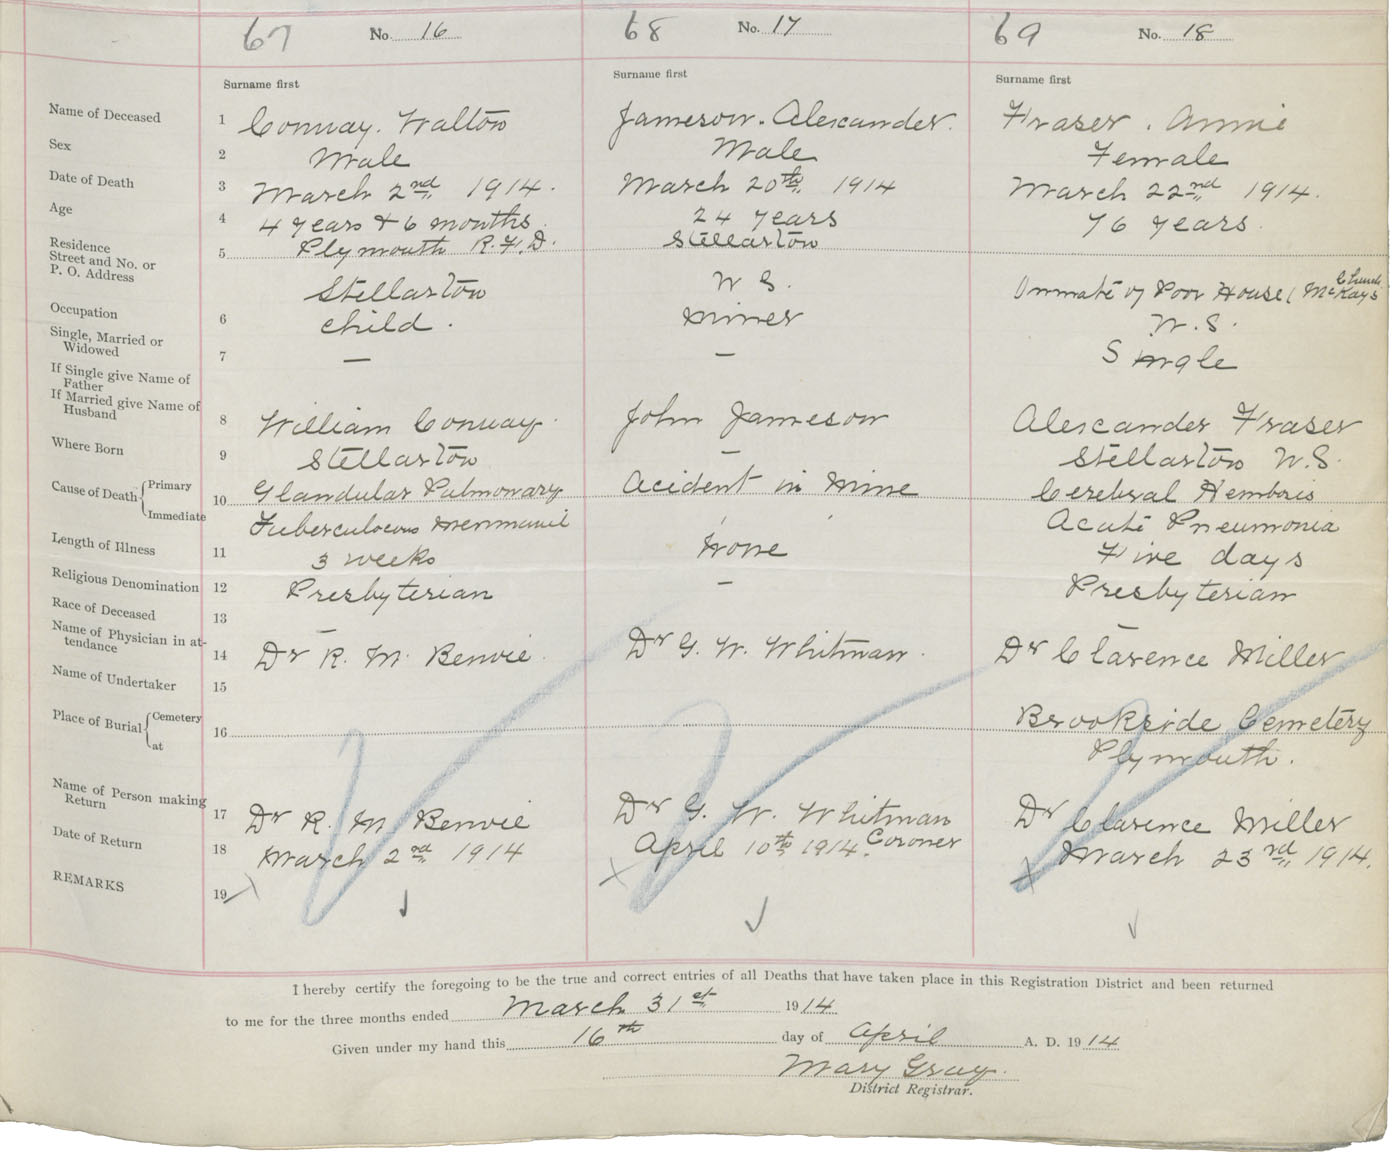 67 No. 16 68 No. 17 69 No. 18
Surname first Surname first Surname first
Name of Deceased 1 Conway. Walton Jameson. Alexander. Fraser. Annie
Sex 2 Male Male Female
Date of Death 3 March 2nd 1914. March 20th 1914 March 22nd 1914.
Age 4 4 years & 6 months. 24 years 76 years.
Residence
Street and No. or
P. O. Address 5 Plymouth R. F. D. Stellarton
Stellarton N S. Inmate of Poor House ( McKays Church
Occupation 6 child. Miner N. S.
Single, Married or
Widowed 7 — — Single
If Single give Name of
Father
If Married give Name of
Husband 8 William Conway. John Jameson Alexander Fraser
Where Born 9 Stellarton — Stellarton N. S.
Cause of Death { Primary 10 Glandular Pulmonary Acident in Mine Cerebral Hemboris
Immediate Tuberculocous Acute Pneumonia
Length of Illness 11 3 weeks None Five days
Religious Denomination 12 Presbyterian — Presbyterian
Race of Deceased 13 — —
Name of Physician in at-
tendance 14 Dr R. M. Benvie. Dr G. W. Whitman. Dr Clarence Miller
Name of Undertaker 15
Place of Burial { Cemetery 16 Brookside Cemetery
at Plymouth.
Name of Person making
Return 17 Dr R. M Benvie Dr G. W. Whitman Dr Clarence Miller
Coroner
Date of Return 18 March 2nd 1914 April 10th 1914. March 23rd 1914.
REMARKS 19
I hereby certify the foregoing to be the true and correct entries of all Deaths that have taken place in this Registration District and been returned
to me for the three months ended March 31st 1914
Given under my hand this 16th day of April A. D. 1914
Mary Gray.
District Registrar.